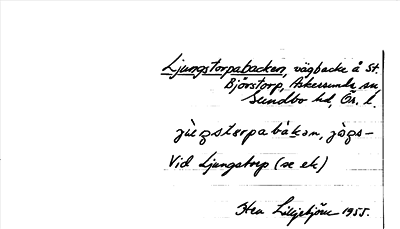 Ljungstorpabacken, vägbacke å St.
Björstorp, Askersunds sn
Sundbo hd, Ör. l.
jùŋstorpabàkən, jòŋs-
Vid Ljungstorp (se ek)
Htra Liljebjörn 1955.